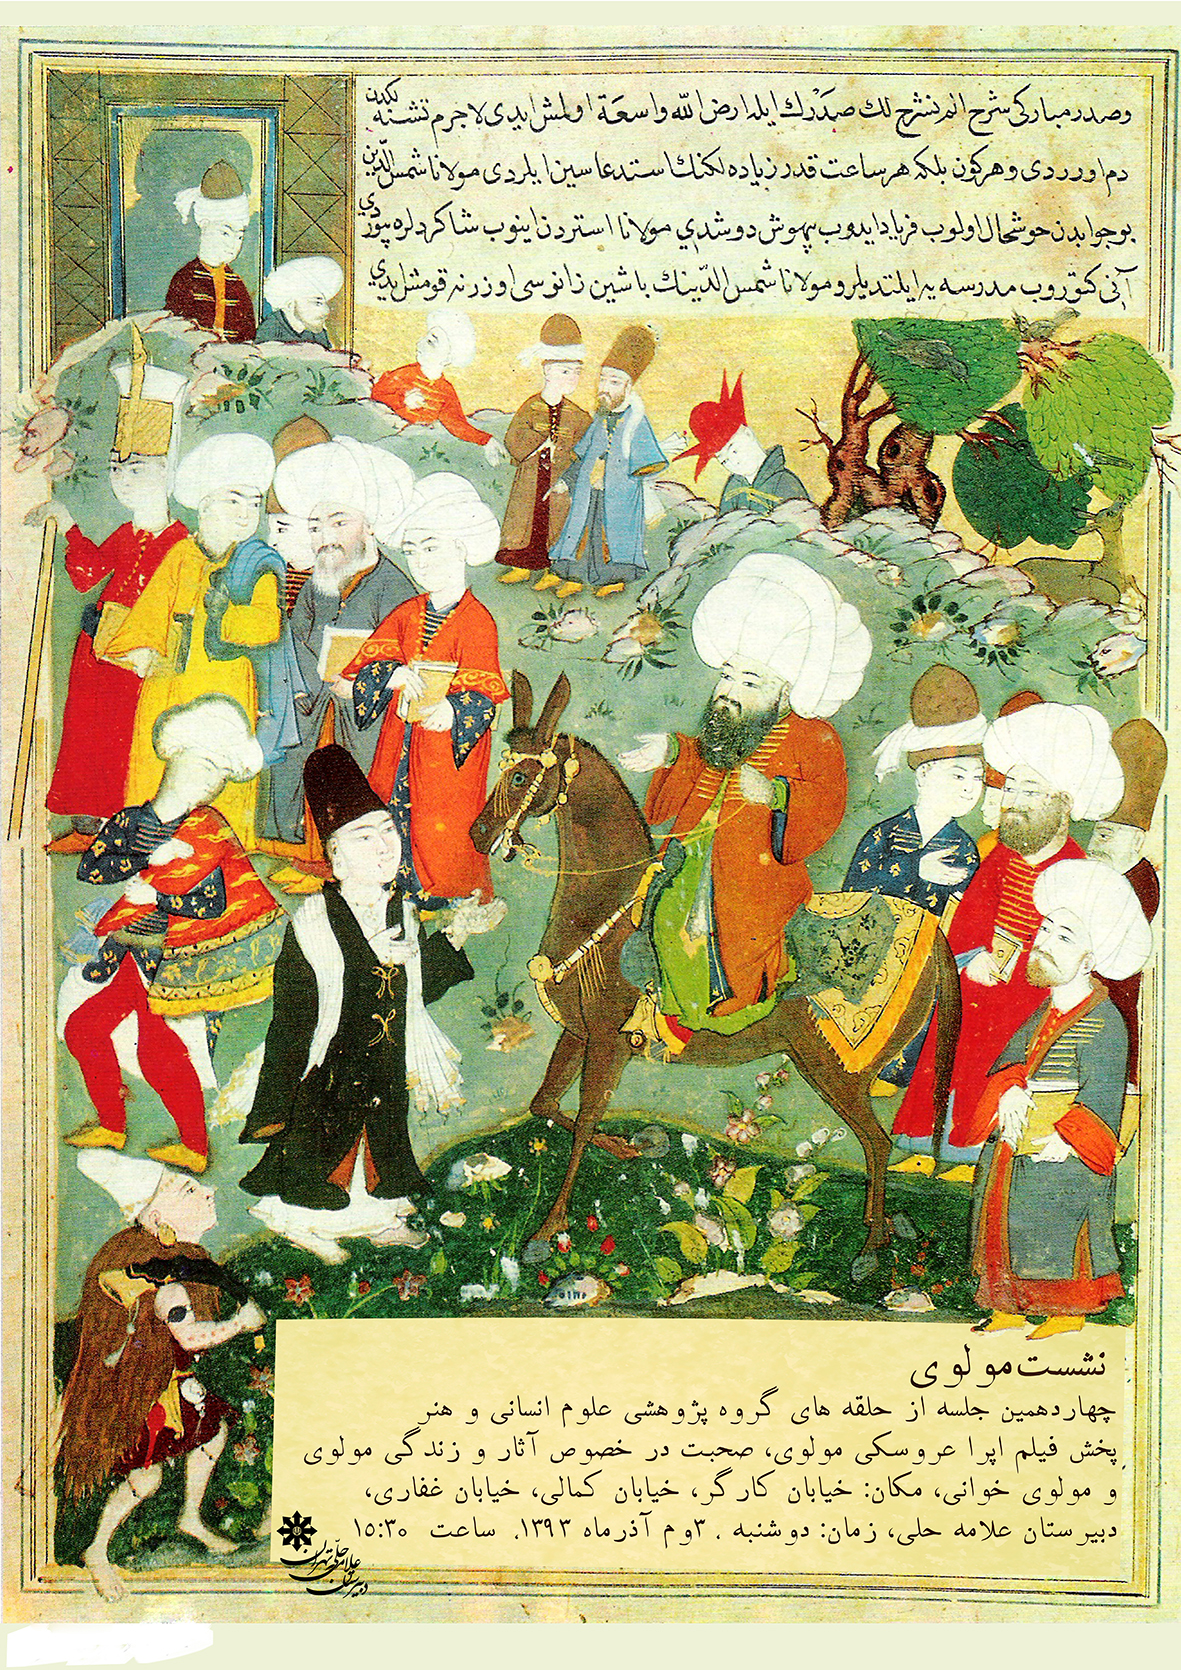 وصدر مباركی شرح الم نشرح لك صدرك ایله ارض الله واسعة اولمش ایدی لاجرم تشنه لكدن
دم اورردی و هركون بلكه هر ساعت قدر زیاده لكنك استدعاسین ایلردی مولانا شمس الدین
بو جوابدن خوشحال اولوب فریاد ایدوب بیهوش دوشدی مولانا استردن اینوب شاكردلره بیوردی
آنی كتوروب مدرسه یه ایلتدیلر و مولانا شمس الدینك باشین زانوسی اوزرنه قومشلیدی
نشست مولوی
چهاردهمین جلسه از حلقه های گروه پژوهشی علوم انسانی و هنر
پخش فیلم اپرا عروسکی مولوی، صحبت در خصوص آثار و زندگی مولوی
و مولوی خوانی، مکان: خیابان کارگر، خیابان کمالی، خیابان غفاری،
دبیرستان علامه حلی، زمان: دوشنبه ۳۰م آذرماه ۱۳۹۳، ساعت ۱۵:۳۰
دبیرستان علامه حلی تهران